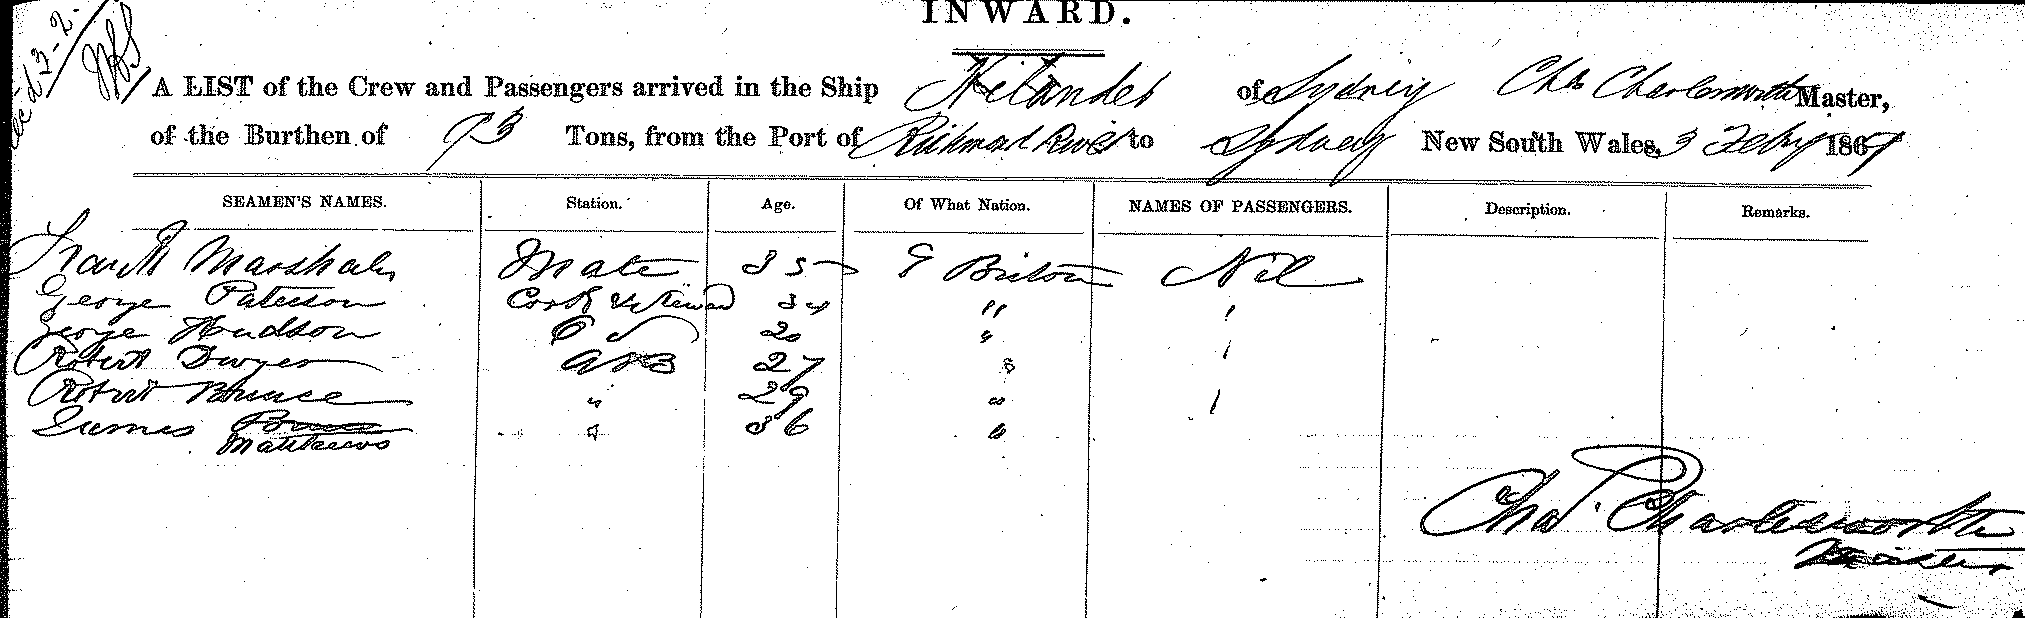 INWARD.
3-2-
A LIST of the Crew and Passengers arrived in the Ship of Sydney Chas Charlesworth Master,
of the Burthen of 93 Tons, from the Port of Richmond River to Sydney New South Wales, 3 Feby 1867
SEAMEN'S NAMES. Station. Age. Of What Nation. NAMES OF PASSENGERS. Description. Remarks.
Frank Marshall Mate 35 G Britain Nil
George Paterson Cook & Steward 34 " '
George Hudson O S 20 "
Robert Dwyer A B 27 " '
Robert Bruce " 29 " '
James " 36 "
Matthews
Chas. Charlesworth
Master